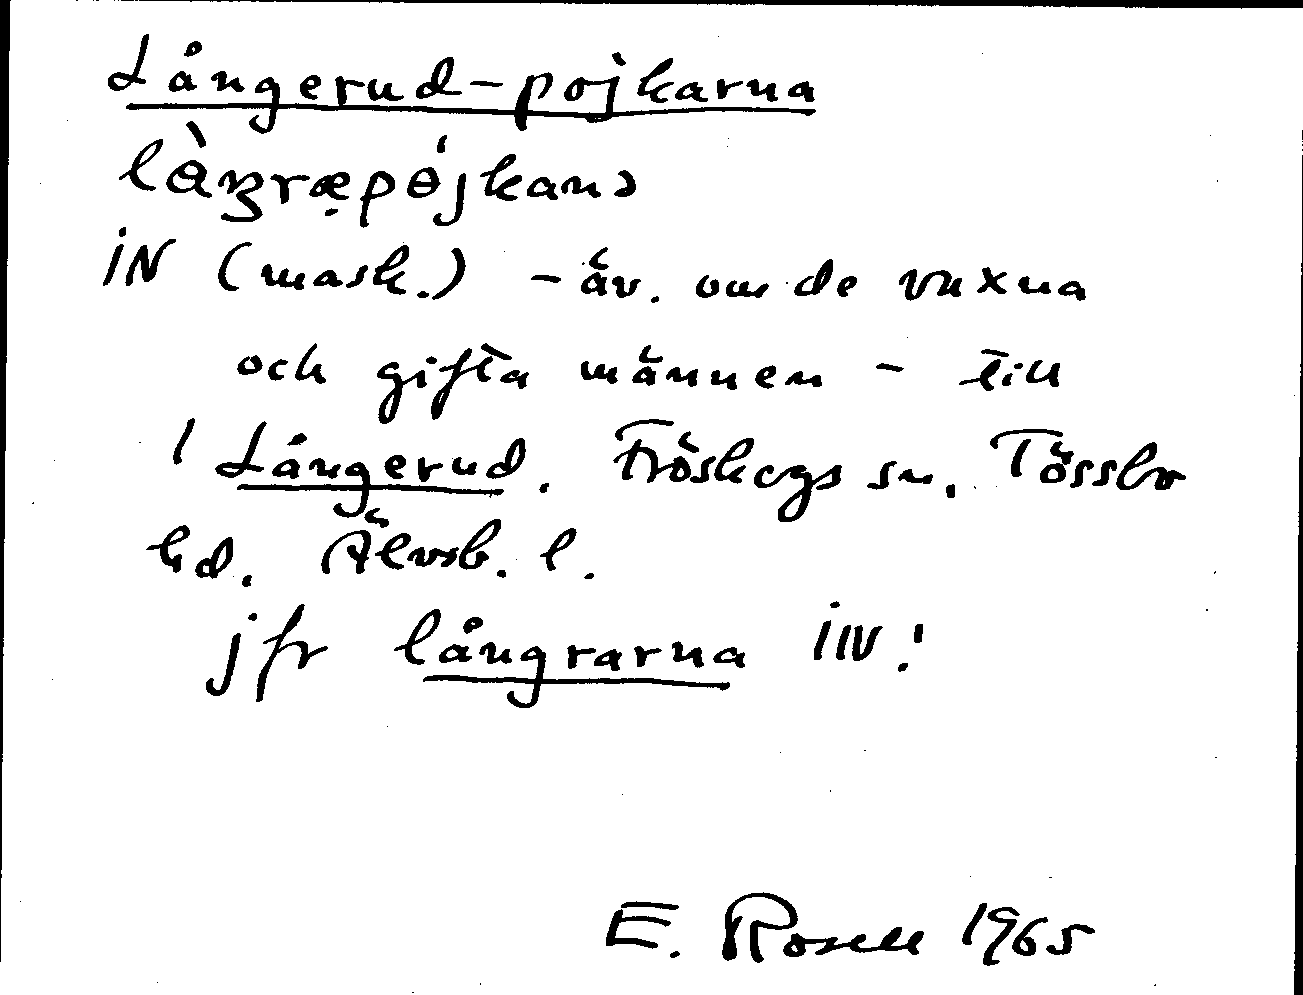 Långerud-pojkarna
làŋræpǿjkans
iN (mask.) - äv. om de vuxna
och gifta männen - till
1 Långerud. Fröskogs sn. Tössbo
hd. Älvsb. l.
jfr långrarna iN.!
E. Rosell 1965